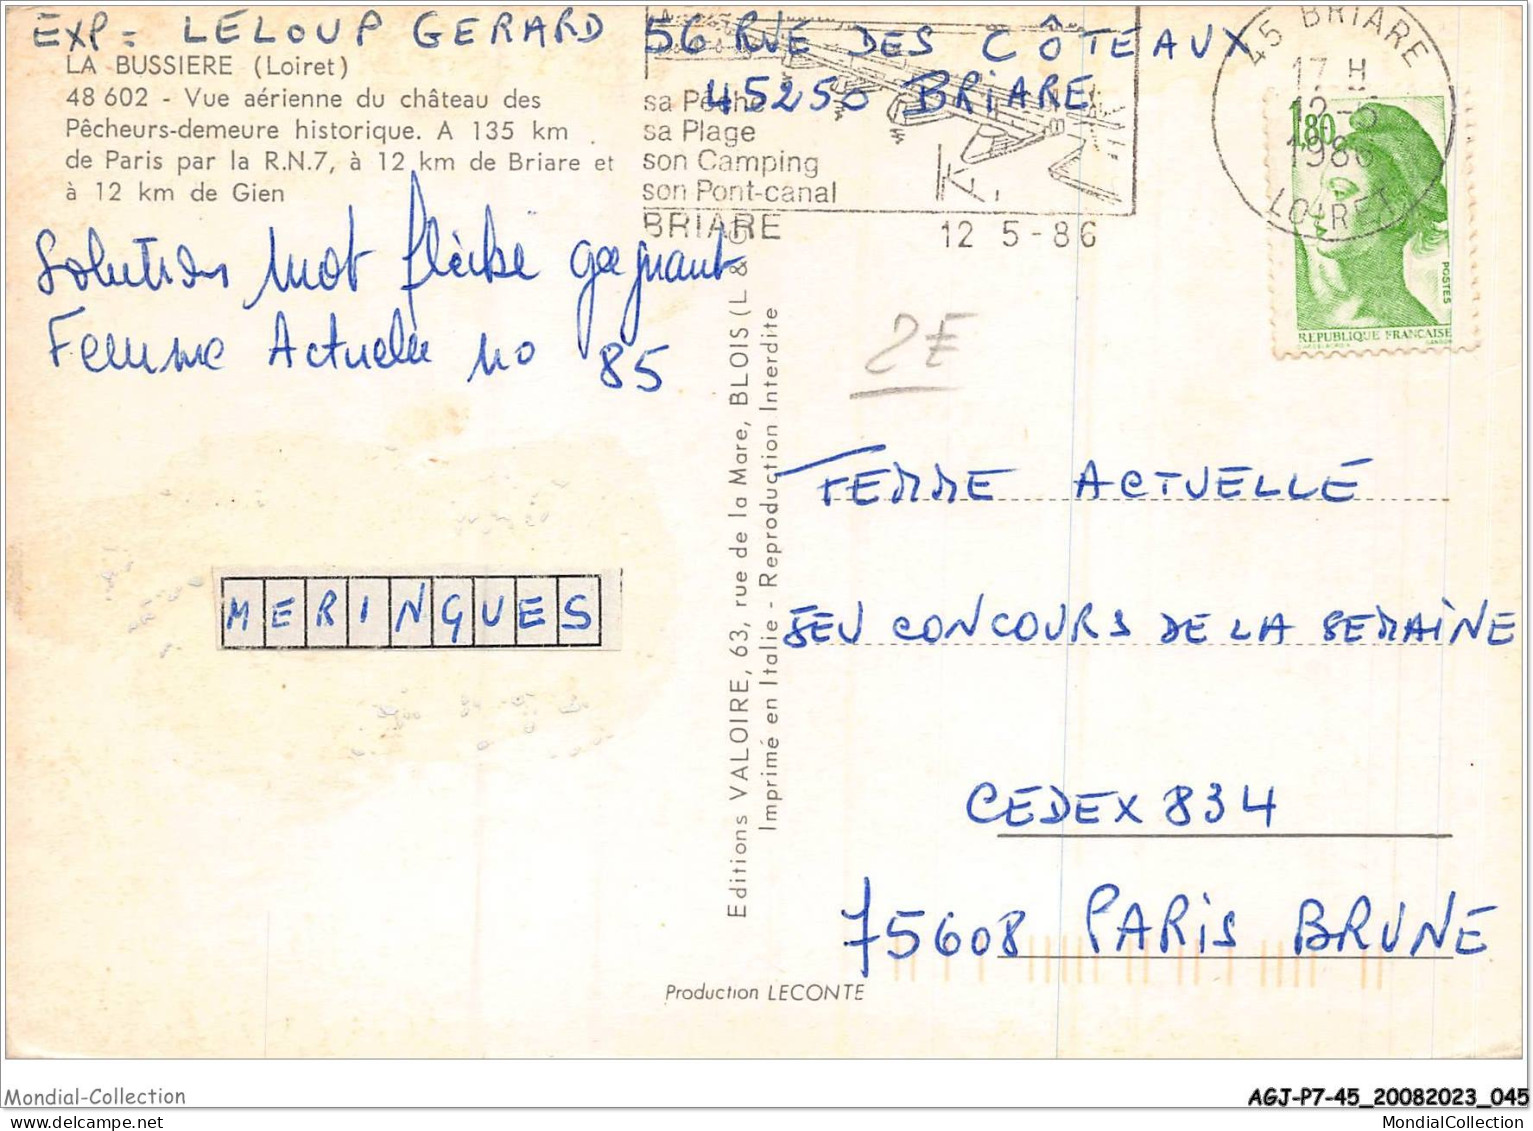 EXP = LELOUP GERARD 56 RUE DES CÔTEAUX
45250 BRIARE
LA BUSSIERE (Loiret)
48 602 - Vue aérienne du château des
Pêcheurs-demeure historique. A 135 km
de Paris par la R.N.7, à 12 km de Briare et
à 12 km de Gien
sa Pêche
sa Plage
son Camping
son Pont-canal
BRIARE
12 5-86
45 BRIARE
17 H
12-5
1986
LOIRET
1,80
POSTES
REPUBLIQUE FRANCAISE
Solution mot flèché gagnant
Femme Actuelle no 85
2E
MERINGUES
Editions VALOIRE, 63, rue de la Mare, BLOIS (L & C)
Imprimé en Italie - Reproduction Interdite
FEMME ACTUELLE
JEU CONCOURS DE LA SEMAINE
CEDEX 834
75608 PARIS BRUNE
Production LECONTE
Mondial-Collection
AGJ-P7-45_20082023_045
MondialCollection